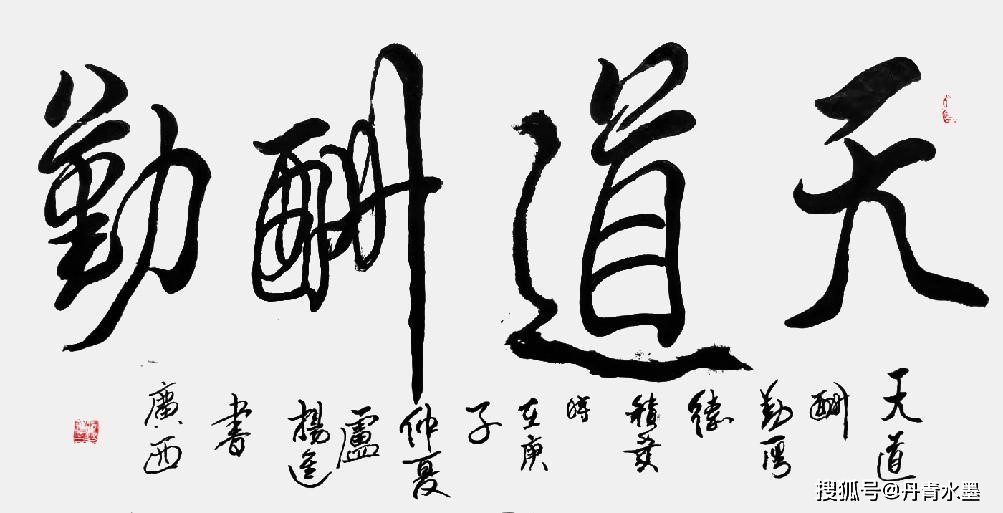 天道酬勤
天道
酬
勤厚
德
積
時
在庚
子
仲夏
盧
揚進
書
廣西
搜狐号@丹青水墨